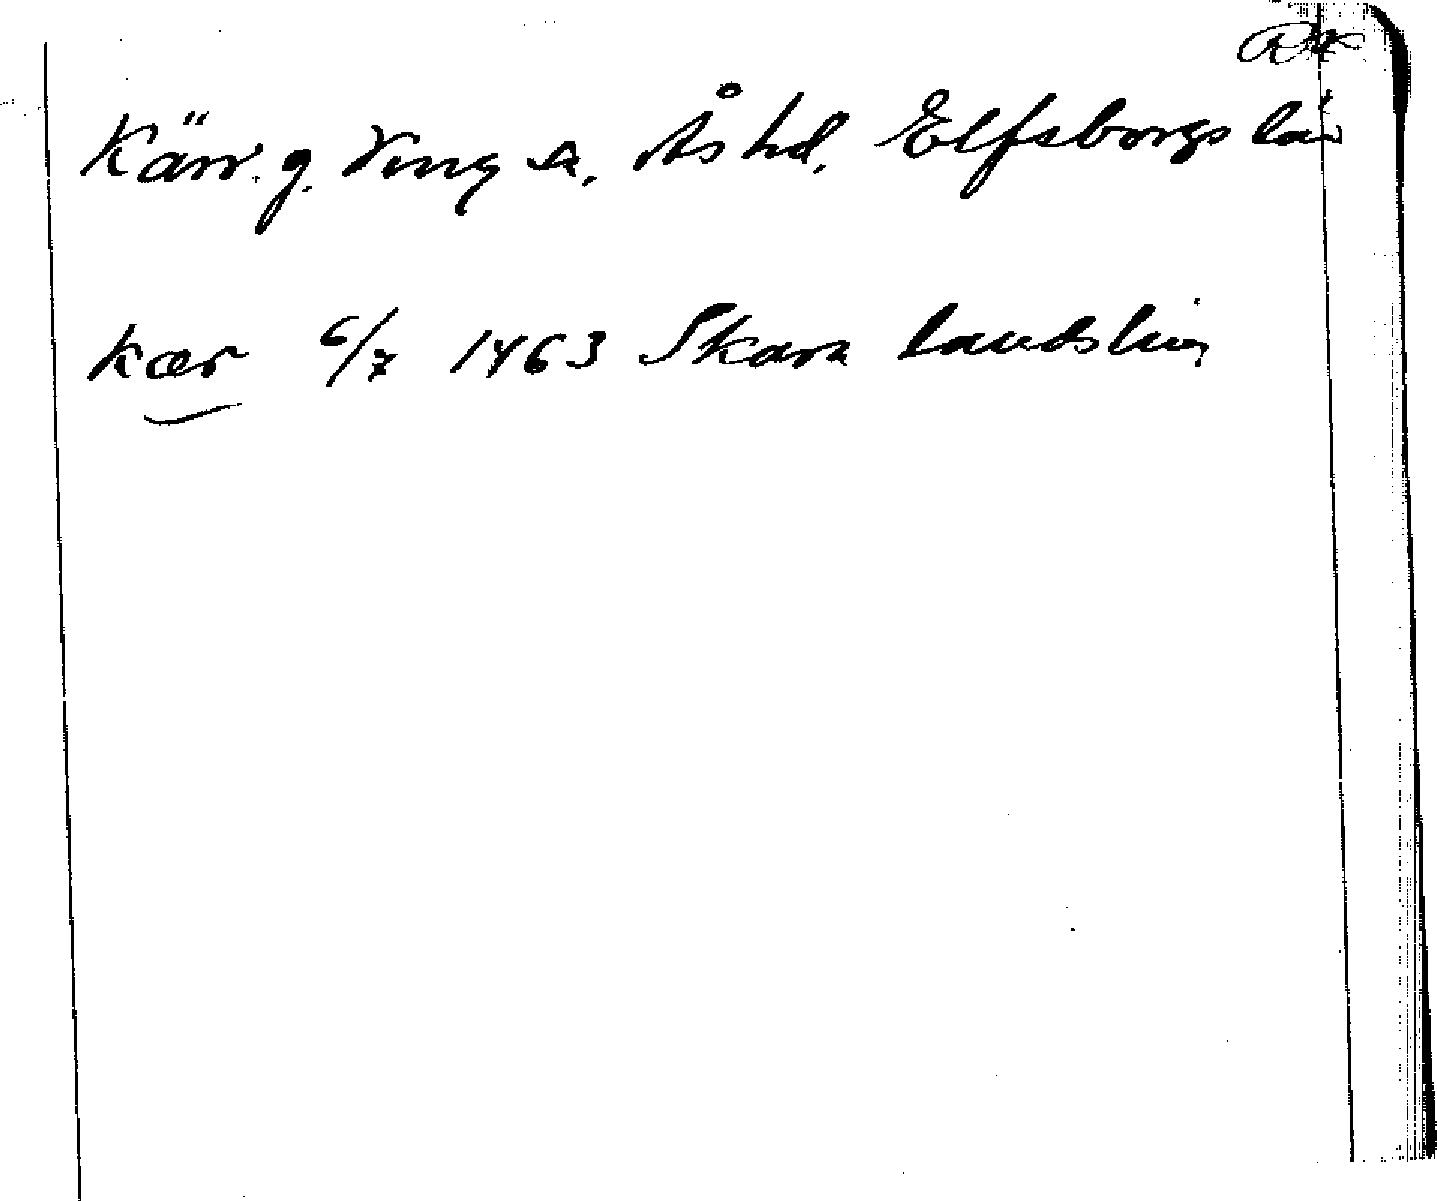 Kärr. g. Ving sn. Ås hd. Elfsborgs län
kær 6/7 1463 Skara landsting